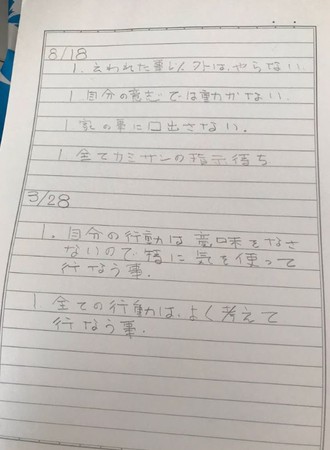 8/18
1. 云われた事以外は、やらない
1 自分の意志では動かない
1 家の事に口出さない.
1 全てカミサンの指示待ち
3/28
1. 自分の行動は意味をなさ
ないので 特に 気を使って
行なう事.
1 全ての行動は、よく考えて
行なう事.